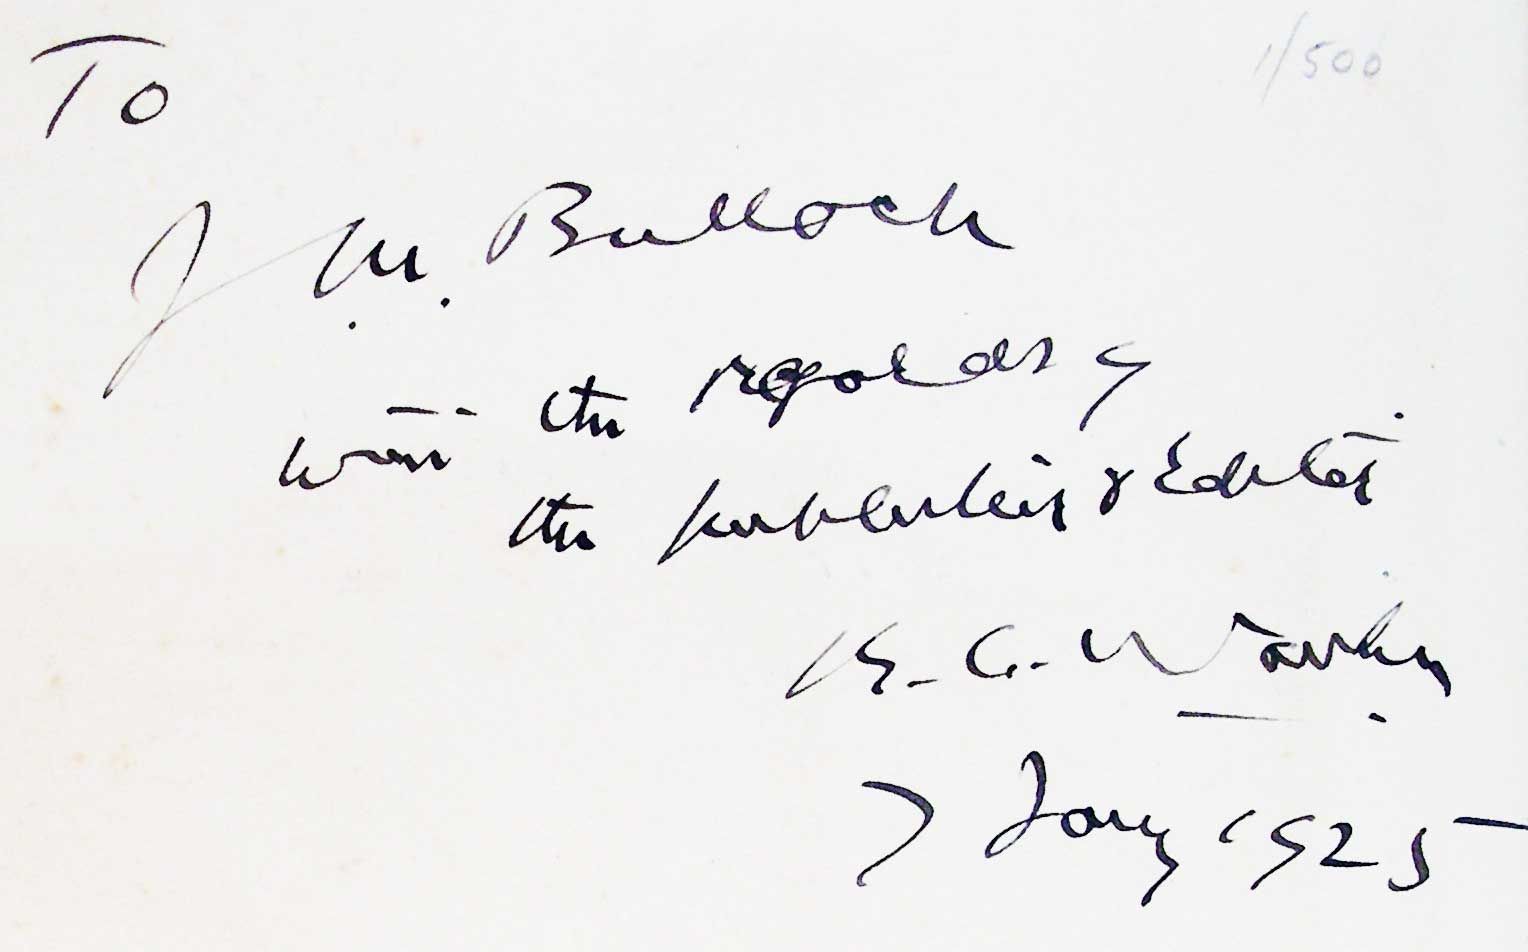 To
1/500
J. M. Bulloch
with the regards of
the publishers & Editor
7 Jany 1925